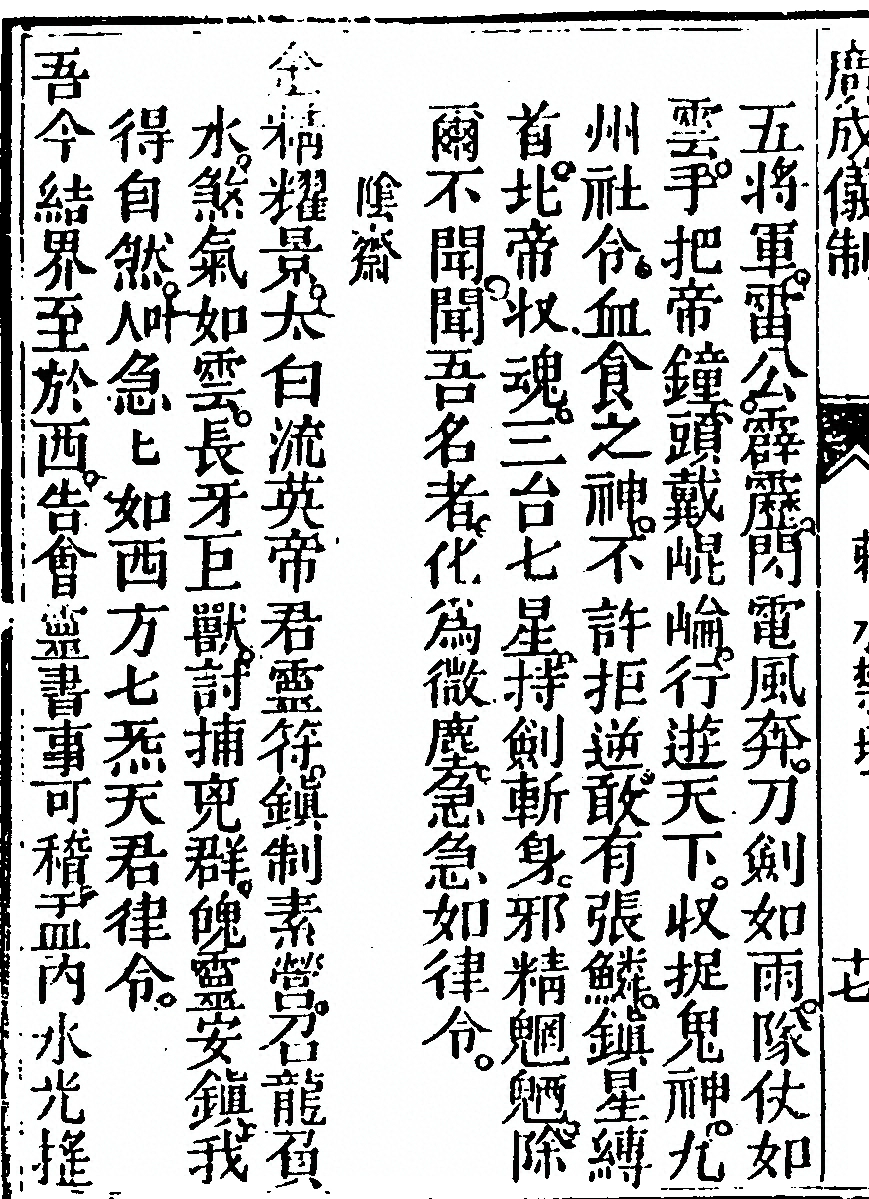 廣成儀制 十七
五將軍雷公霹靂閃電風奔刀劍如雨隊仗如
雲手把帝鐘頭戴崐崙行遊天下收捉鬼神九
州社令血食之神不許拒逆敢有張鱗鎮星縛
首北帝收魂三台七星持劍斬身邪精魍魎除
爾不聞聞吾名者化為微塵急急如律令
陰齋
金精耀景太白流英帝君靈符鎮制素營召龍負
水煞氣如雲長牙巨獸討捕兇群魄靈安鎮我
得自然叶急匕如西方七炁天君律令
吾今結界至於西告會靈書事可稽盂內水光搖